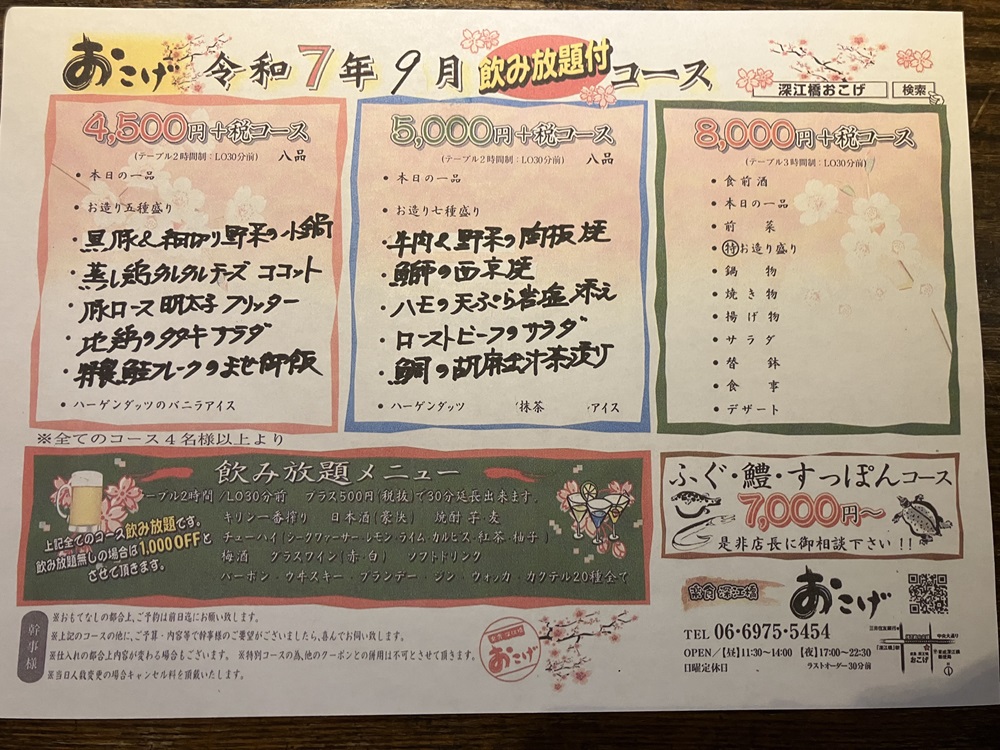 おこげ 令和7年9月 飲み放題付コース
深江橋おこげ 検索
4,500円+税コース
(テーブル2時間制:LO30分前) 八品
• 本日の一品
• お造り五種盛り
• 黒豚&和切り野菜の小鍋
• 蒸し鶏タルタルチーズ ココット
• 豚ロース明太子フリッター
• 地鶏のタタキサラダ
• 特製鮭フレークのよせ御飯
• ハーゲンダッツのバニラアイス
5,000円+税コース
(テーブル2時間制:LO30分前) 八品
• 本日の一品
• お造り七種盛り
• 牛肉&野菜の陶板焼
• 鰤の西京焼
• ハモの天ぷら岩塩添え
• ローストビーフのサラダ
• 鯛の胡麻出汁茶漬り
• ハーゲンダッツ 抹茶 アイス
8,000円+税コース
(テーブル3時間制:LO30分前)
• 食前酒
• 本日の一品
• 前菜
• ㊕お造り盛り
• 鍋物
• 焼き物
• 揚げ物
• サラダ
• 替鉢
• 食事
• デザート
※全てのコース4名様以上より
飲み放題メニュー
ーブル2時間/LO30分前 プラス500円(税抜)で30分延長出来ます。
キリン一番搾り 日本酒(豪快) 焼酎 芋・麦
チューハイ(シークワァーサー・レモン・ライム・カルピス・紅茶・柚子)
梅酒 グラスワイン(赤・白) ソフトドリンク
バーボン・ウヰスキー・ブランデー・ジン・ウォッカ・カクテル20種全て
上記全てのコース飲み放題です。
飲み放題無しの場合は1,000OFFと
させて頂きます。
ふぐ・鱧・すっぽんコース
7,000円~
是非店長に御相談下さい!!
幹事様
※おもてなしの都合上、ご予約は前日迄にお願い致します。
※上記のコースの他に、ご予算・内容等で幹事様のご要望がございましたら、喜んでお伺い致します。
※仕入れの都合上内容が変わる場合もございます。 ※特別コースの為、他のクーポンとの併用は不可とさせて頂きます。
※当日人数変更の場合キャンセル料を頂戴いたします。
おこげ
深江橋 おこげ
TEL 06・6975・5454
OPEN/【昼】11:30~14:00 【夜】17:00~22:30
日曜定休日 ラストオーダー30分前